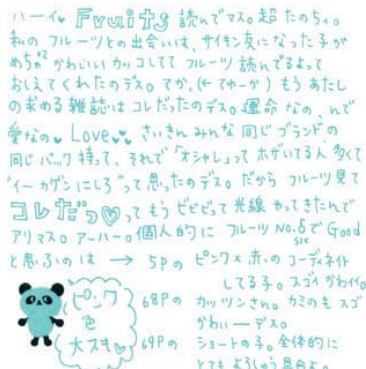 ハーイ♥ Fruits 読んでマス。超 たのちぃ。
私の フルーツとの出会いは、サイキン友になった子が
めちゃ かわいい カッコしてて フルーツ 読んでるよって
おしえてくれたのデス。てか、(←てゆーか) もう あたし
の求める 雑誌は コレだったのデス。運命 なの、んで
愛なの♥ Love♥♥ さいきん みんな 同じ ブランドの
同じ バック 持って、それで「オシャレ」って ホザいてる人 多くて
"イーカゲンにしろ"って思ったのデス。だから フルーツ見て
コレだっ♡って もう ビビビって 光線 やってきたんで
アリマス。アーハー。個人的に フルーツ No.6で Good
six
と思ふのは → 5Pの ピンク×赤の コーディネイト
してる子。スゴイ かわイイ。
ピンク
色
大スキ♥
68Pの カッツンさん。カミのも スゴ
かわいーデス。
69Pの ショートの子。全体的に
とても よろしゅう 具合よ。